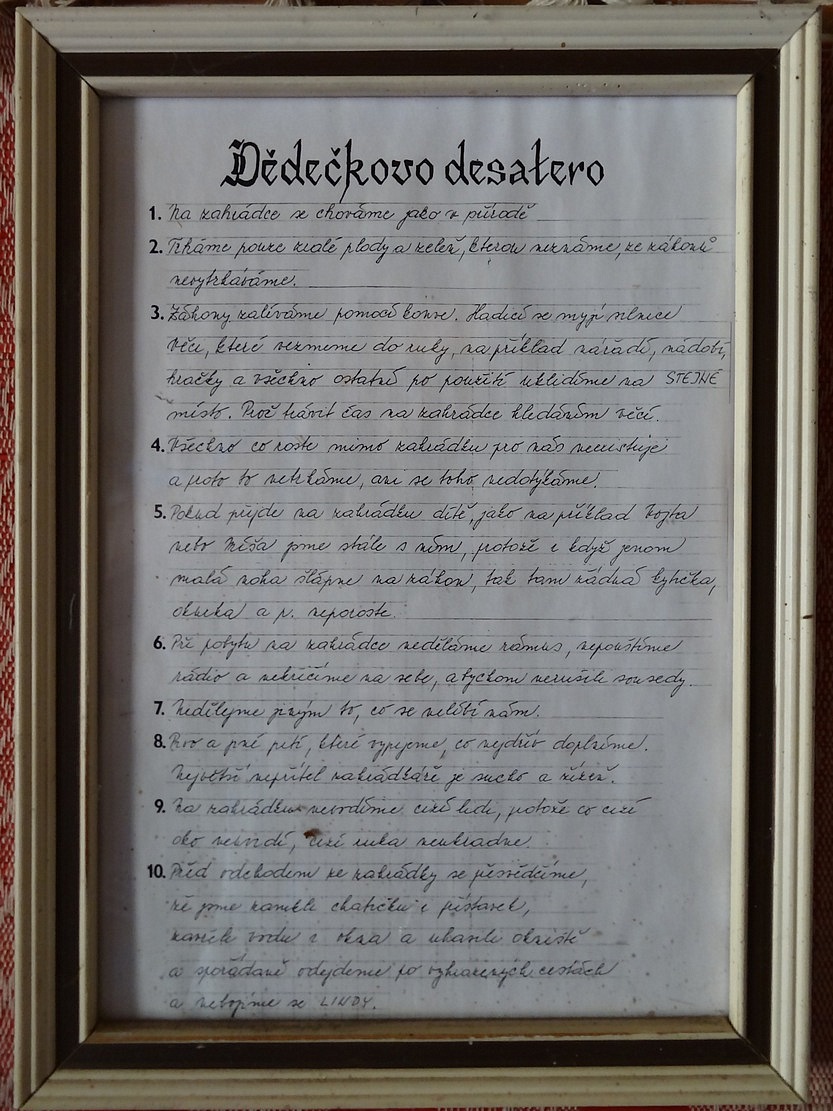 Dědečkovo desatero
1. Na zahrádce se chováme jako v přírodě
2. Trháme pouze zralé plody a zeleň, kterou neznáme, ze záhonů
nevytrháváme.
3. Záhony zaléváme pomocí konve. Hadicí se myjí silnice
Věci, které vezmeme do ruky, na příklad nářadí, nádobí,
hračky a všechno ostatní po použití uklidíme na STEJNÉ
místo. Proč trávit čas na zahrádce hledáním věcí.
4. Všechno co roste mimo zahrádku pro nás neexistuje
a proto to netrháme, ani se toho nedotýkáme!
5. Pokud přijde na zahrádku dítě, jako na příklad Vojta
nebo Míša jsme stále s ním, protože i když jenom
malá noha šlápne na záhon, tak tam žádná kytička,
okurka a p. neporoste.
6. Při pobytu na zahrádce neděláme rámus, nepouštíme
rádio a nekřičíme na sebe, abychom nerušili sousedy.
7. Nedělejme jiným to, co se nelíbí nám.
8. Pivo a jiné pití, které vypijeme, co nejdřív doplníme.
Největší nepřítel zahrádkáře je sucho a žízeň.
9. Na zahrádku nevodíme cizí lidi, protože co cizí
oko nevidí, cizí ruka neukradne.
10. Před odchodem ze zahrádky se přesvědčíme,
že jsme zamkli chatičku i přístavek,
zavřeli vodu i okna a uhasili ohniště
a spořádaně odejdeme po vyhrazených cestách
a nebojme se LINDY.